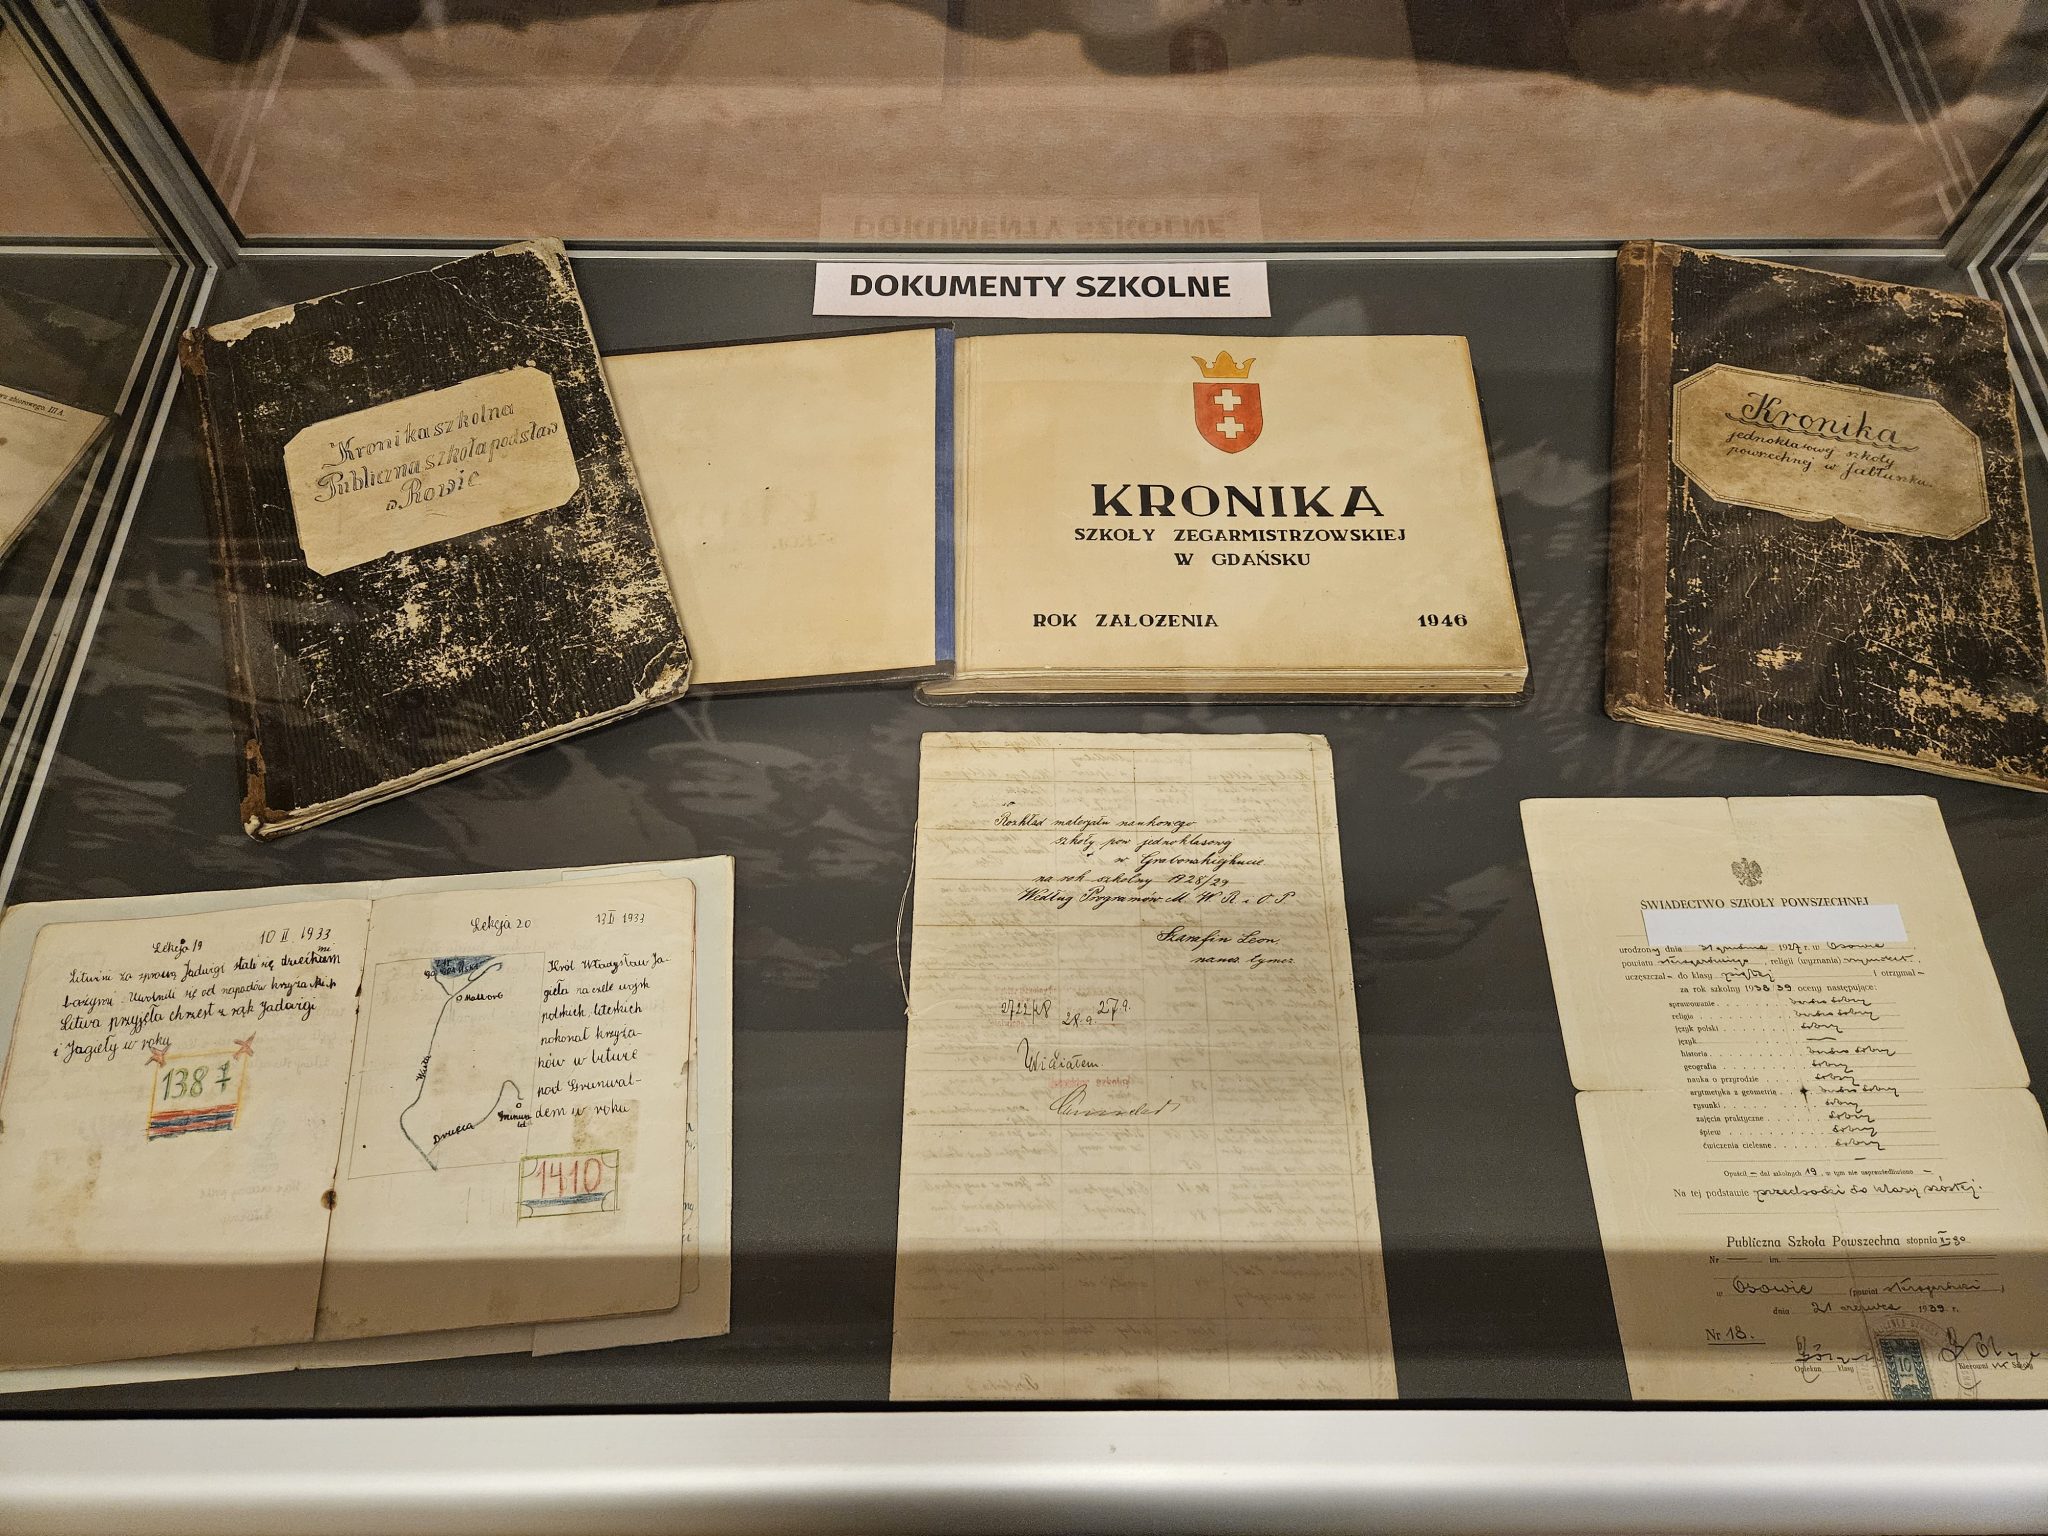 DOKUMENTY SZKOLNE
Kronika szkolna
Publiczna szkoła podstaw
w Rowie
KRONIKA
SZKOŁY ZEGARMISTRZOWSKIEJ
W GDAŃSKU
ROK ZAŁOŻENIA 1946
Kronika
jednoklasowej szkoły
powszechnej w Jabłuszku.
Lekcja 19 10 II. 1933
Litwini za sprawą Jadwigi stali się
bożymi. Uwolnili się od napadów krzyżackich
Litwa przyjęła chrzest z rąk Jadwigi
i Jagiełły w roku
1387
Lekcja 20 13 II 1933
Malbork
Wisła
Drwęca
Król Władysław Ja-
gieła na czele wojsk
polskich, literskich
pokonał krzyża-
ków w bitwie
pod Grunwal-
dem w roku
1410
Rozkład materjału naukowego
szkoły pow jednoklasowej
w
na rok szkolny 1928/29
Według Programów M. W. R. i O. P
Szarafin Leon.
naucz. tymcz.
2722/28
28.9. 27.9.
Widziałem
ŚWIADECTWO SZKOŁY POWSZECHNEJ
urodzony dnia 31 grudnia 1927 r. w Osowie
powiatu starogardzkiego, religii (wyznania)
uczęszczał – do klasy piątej i otrzymał –
za rok szkolny 1938/39 oceny następujące:
sprawowanie bardzo dobry
religia bardzo dobry
język polski dobry
język —
historia bardzo dobry
geografia dobry
nauka o przyrodzie dobry
arytmetyka z geometrią bardzo dobry
rysunki dobry
zajęcia praktyczne dobry
śpiew dobry
ćwiczenia cielesne dobry
Opuścił – dni szkolnych 19, w tym nie usprawiedliwiono –
Na tej podstawie przechodzi do klasy szóstej.
Publiczna Szkoła Powszechna stopnia I-go
Nr — im. —
w Osowie (powiat starogardzki)
dnia 21 czerwca 1939 r.
Nr 18.
Opiekun klasy Kierownik Szkoły
10